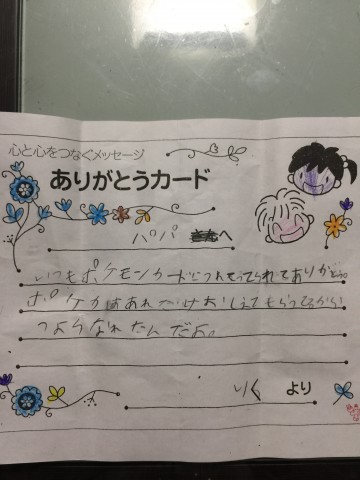 心と心をつなぐメッセージ
ありがとうカード
パパ へ
いつもポケモンカードにつれてってくれてありがとう。
ポケカはあれだけおしえてもらってるから
つよくなれたんだよ。
りく より